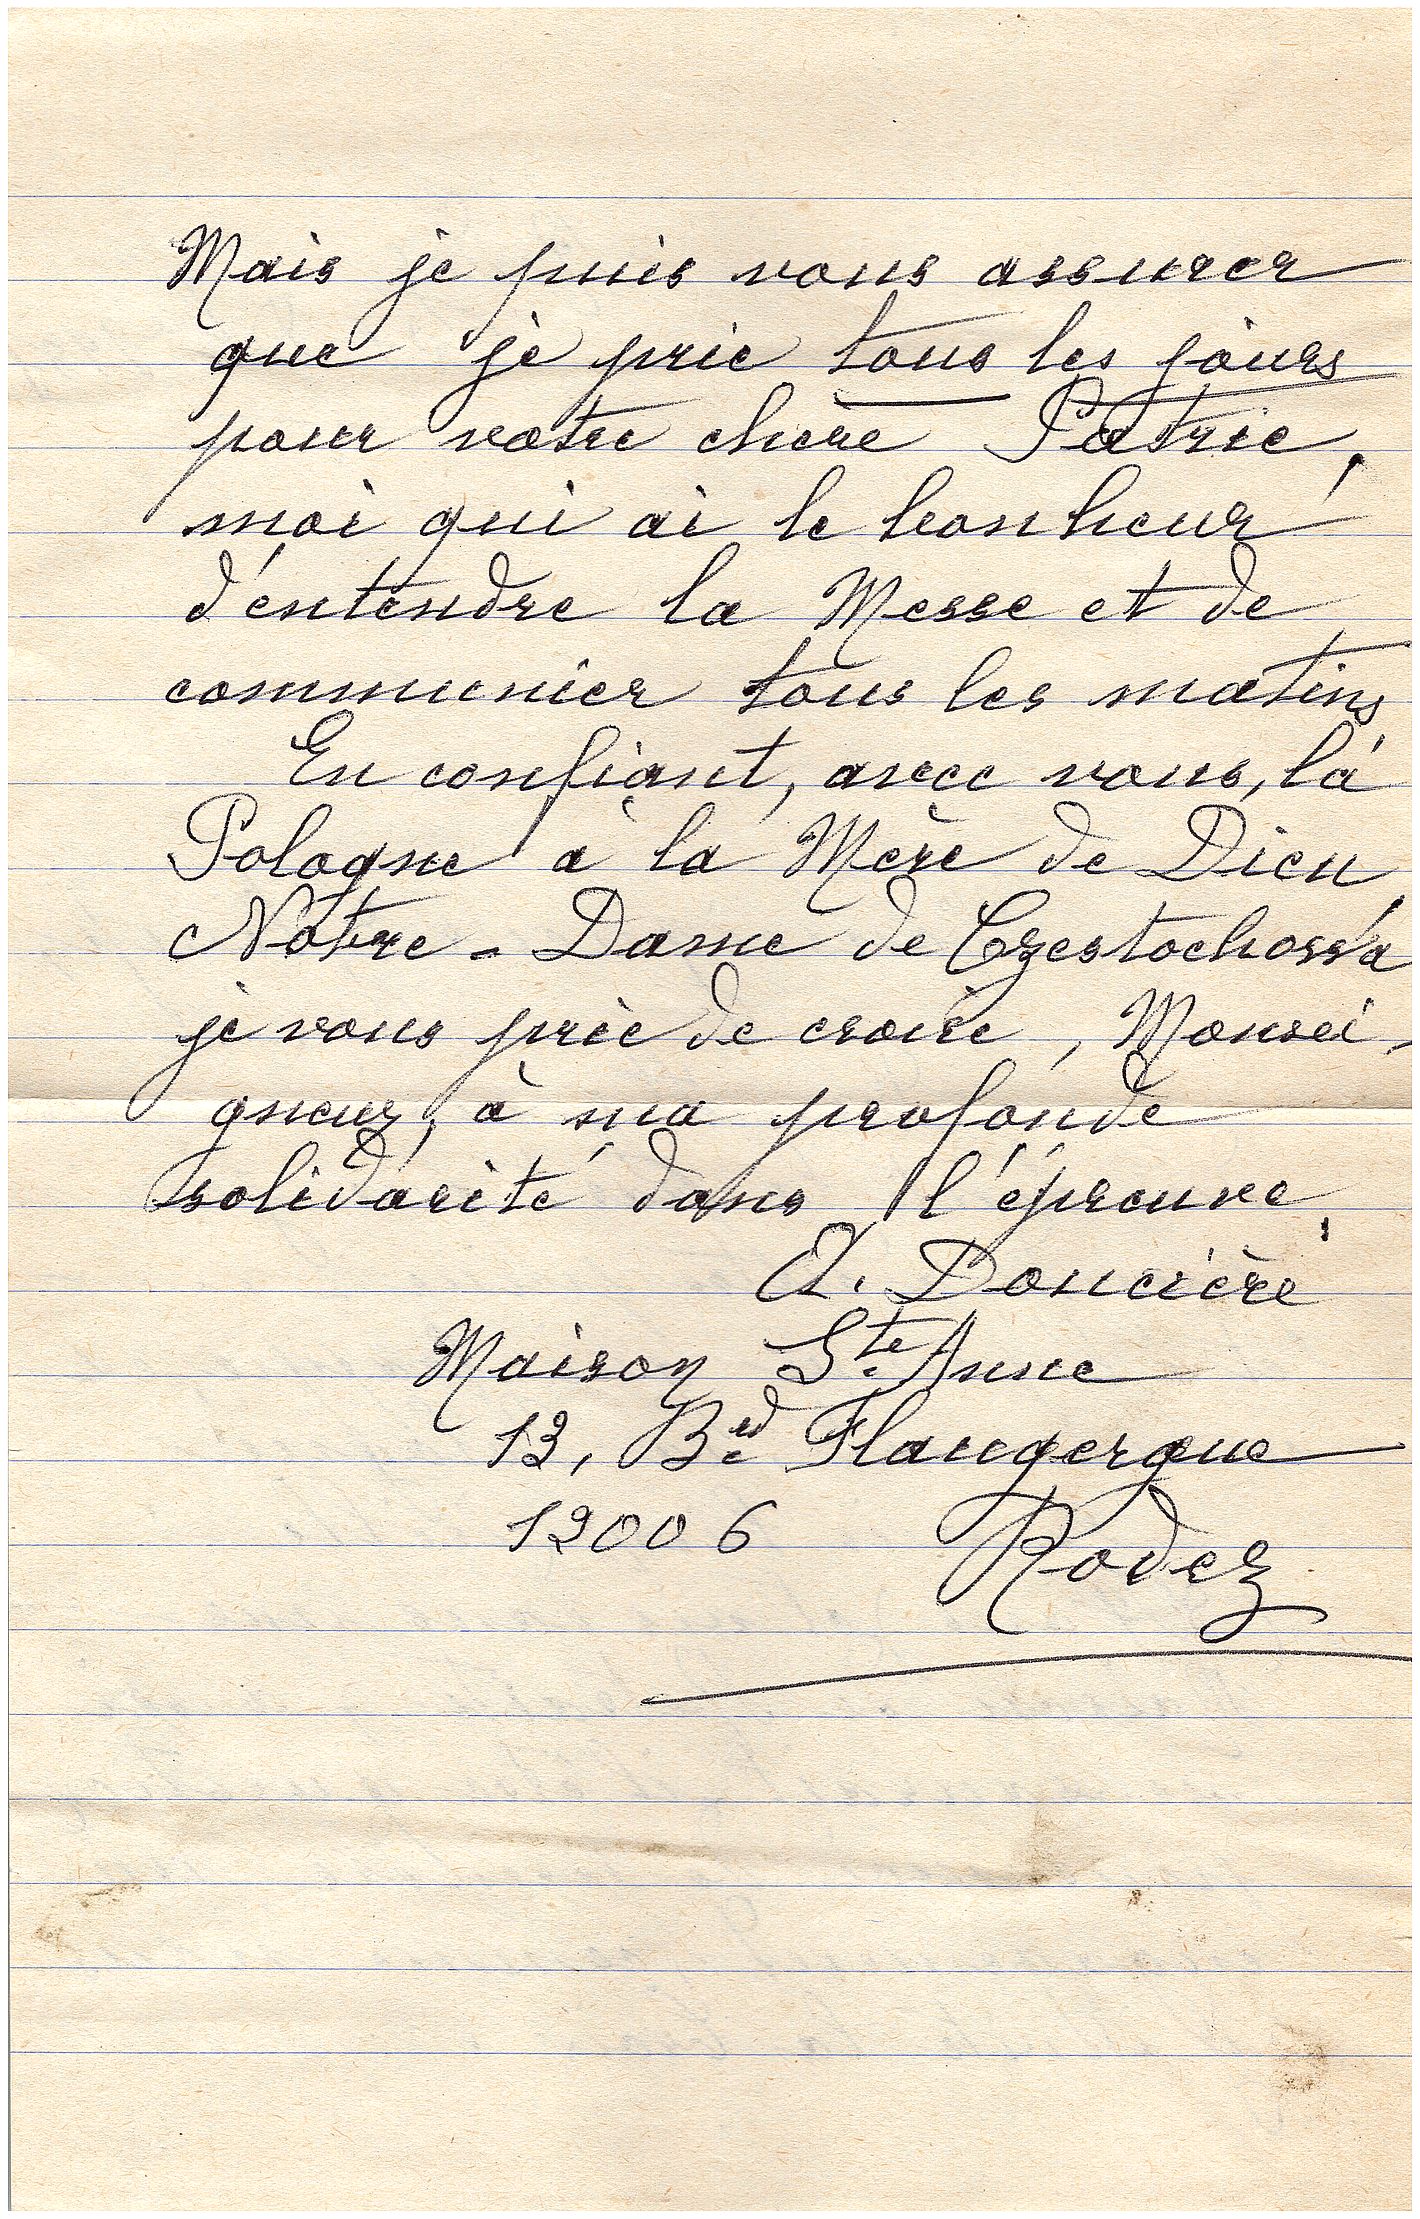 Mais je puis vous assurer
que je prie tous les jours
pour votre chère Patrie,
moi qui ai le bonheur
d'entendre la Messe et de
communier tous les matins
En confiant, avec vous, la
Pologne à la Mère de Dieu,
Notre-Dame de Czestochova
je vous prie de croire, Monsei-
gneur, à ma profonde
solidarité dans l'épreuve.
Doncière
Maison Ste Anne
13, Bd Flaugergue
12006 Rodez